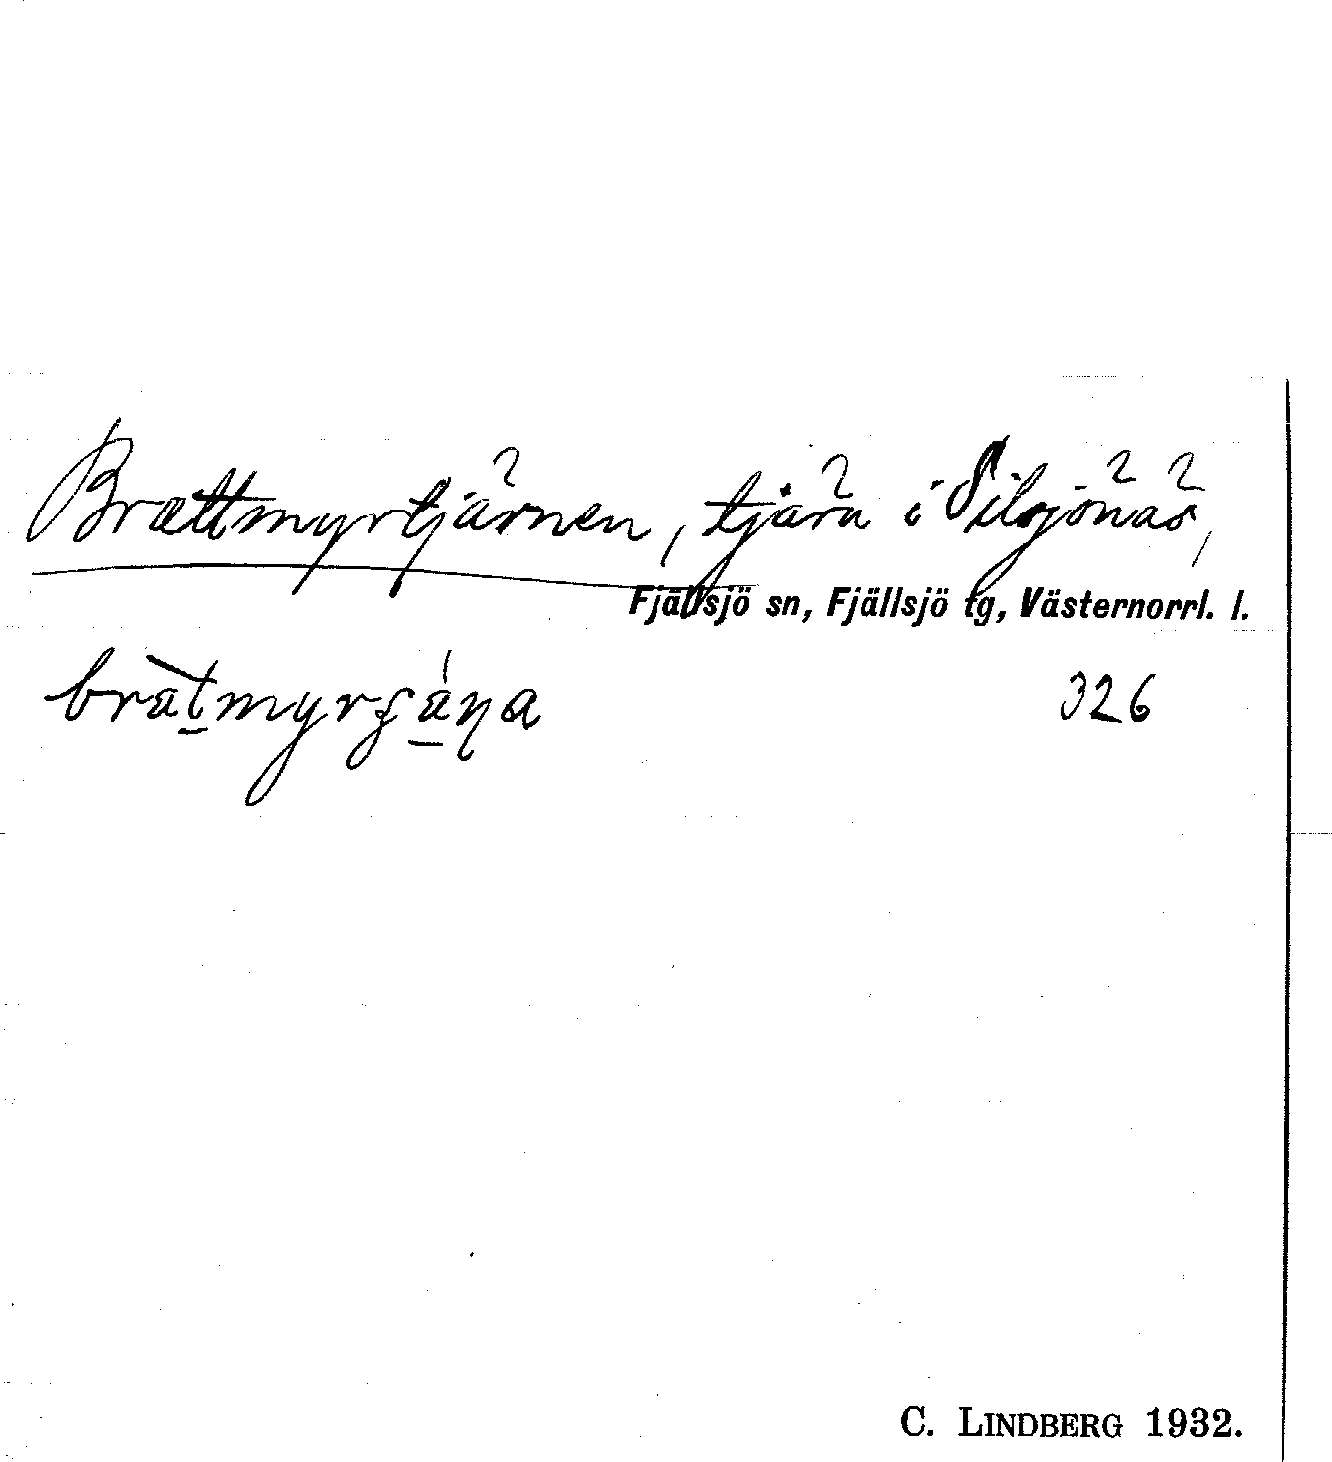 Brattmyrtjärnen, tjärn i Silsjönäs,
Fjällsjö sn, Fjällsjö tg, Västernorrl. l.
326
C. LINDBERG 1932.